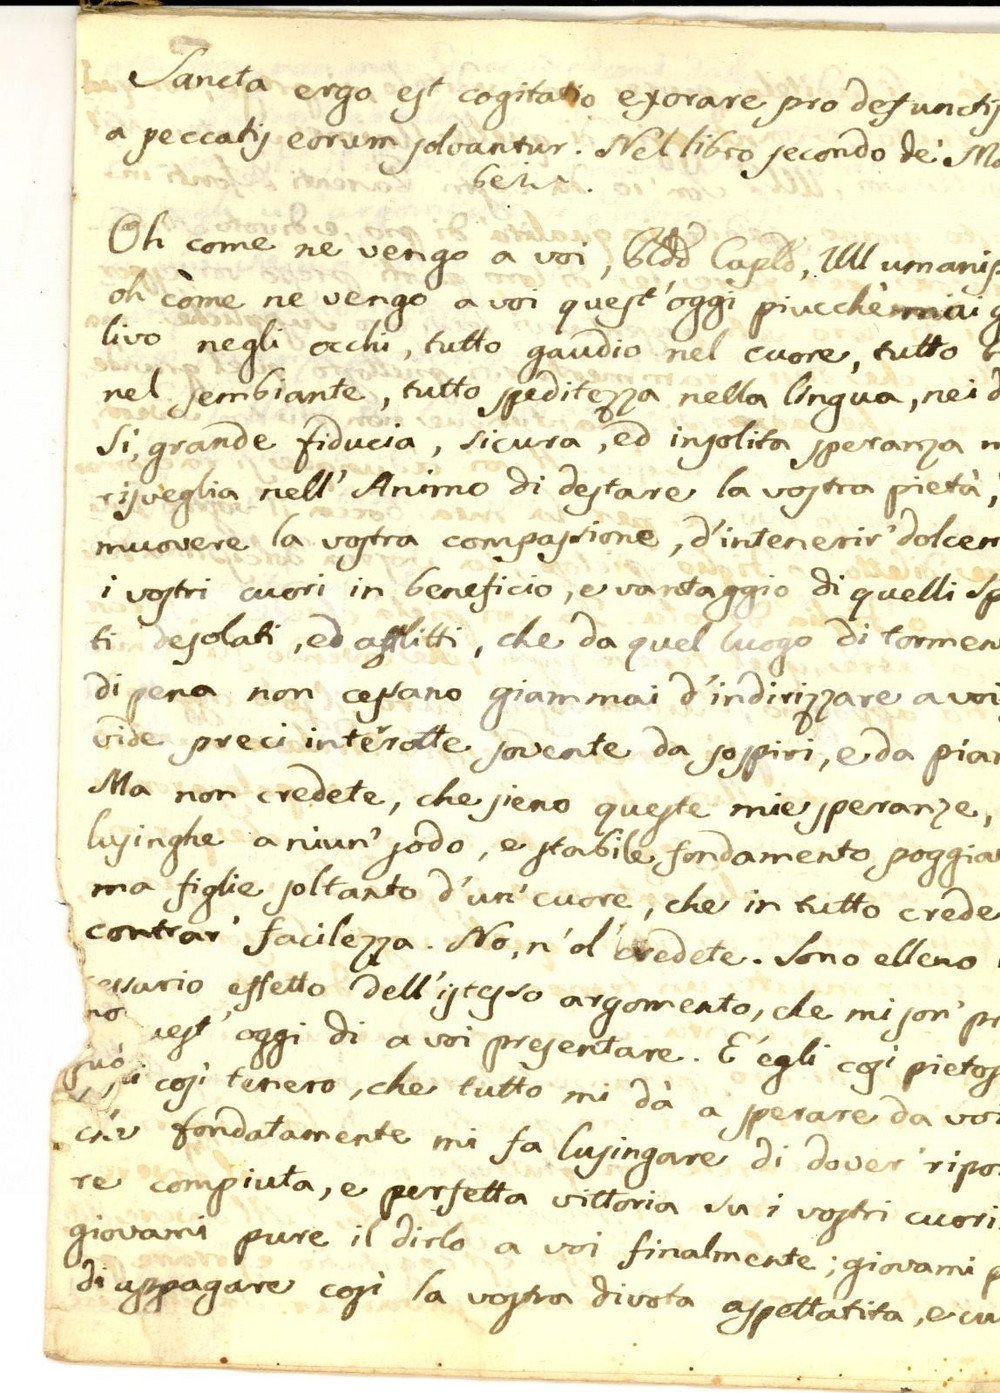 Sancta ergo est cogitatio exorare pro defunctis
a peccatis eorum solvantur. Nel libro secondo de' Ma
Oh come ne vengo a voi, Umanis
oh come ne vengo a voi quest'oggi piucchè mai g
livo negli occhi, tutto gaudio nel cuore, tutto
nel sembiante, tutto speditezza nella lingua, nei d
Si, grande fiducia, sicura, ed insolita speranza m
risveglia nell' Animo di destare la vostra pietà,
muovere la vostra compassione, d'intenerir' dolcem
i vostri cuori in beneficio, e vantaggio di quelli Sp
ti desolati, ed afflitti, che da quel luogo di tormen
di pena non cessano giammai d'indirizzare a voi
vide preci interotte sovente da sospiri, e da pian
Ma non credete, che sieno queste mie speranze,
lusinghe a niun' sodo, e stabile fondamento poggia
ma figlie soltanto d'un' cuore, che in tutto crede
contrar' facilezza. No, n'ol' credete. Sono elleno
cessario effetto dell'istesso argomento, che mi son' pr
uest' oggi di a voi presentare. E' egli così pietos
così tenero, che tutto mi dà a sperare da voi
che fondatamente mi fa lusingare di dover' ripor
re compiuta, e perfetta vittoria su i vostri cuori.
giovami pure il dirlo a voi finalmente; giovami p
di appagare così la vostra divota aspettativa, e cu